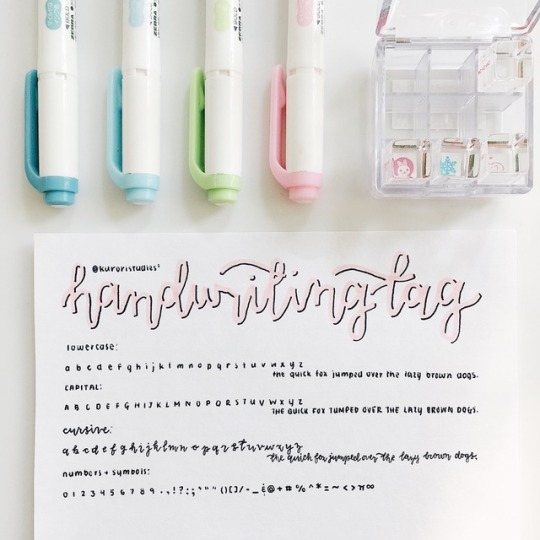 @kuroristudies'
handwriting tag
lowercase:
a b c d e f g h i j k l m n o p q r s t u v w x y z
the quick fox jumped over the lazy brown dogs.
CAPITAL:
A B C D E F G H I J K L M N O P Q R S T U V W X Y Z
THE QUICK FOX JUMPED OVER THE LAZY BROWN DOGS.
cursive:
a b c d e f g h i j k l m n o p q r s t u v w x y z
the quick fox jumped over the lazy brown dogs.
numbers + symbols:
0 1 2 3 4 5 6 7 8 9 . , ! ? : ; ' " " ( ) [ ] / - _ & @ + # % ^ * = ~ < > π ∞